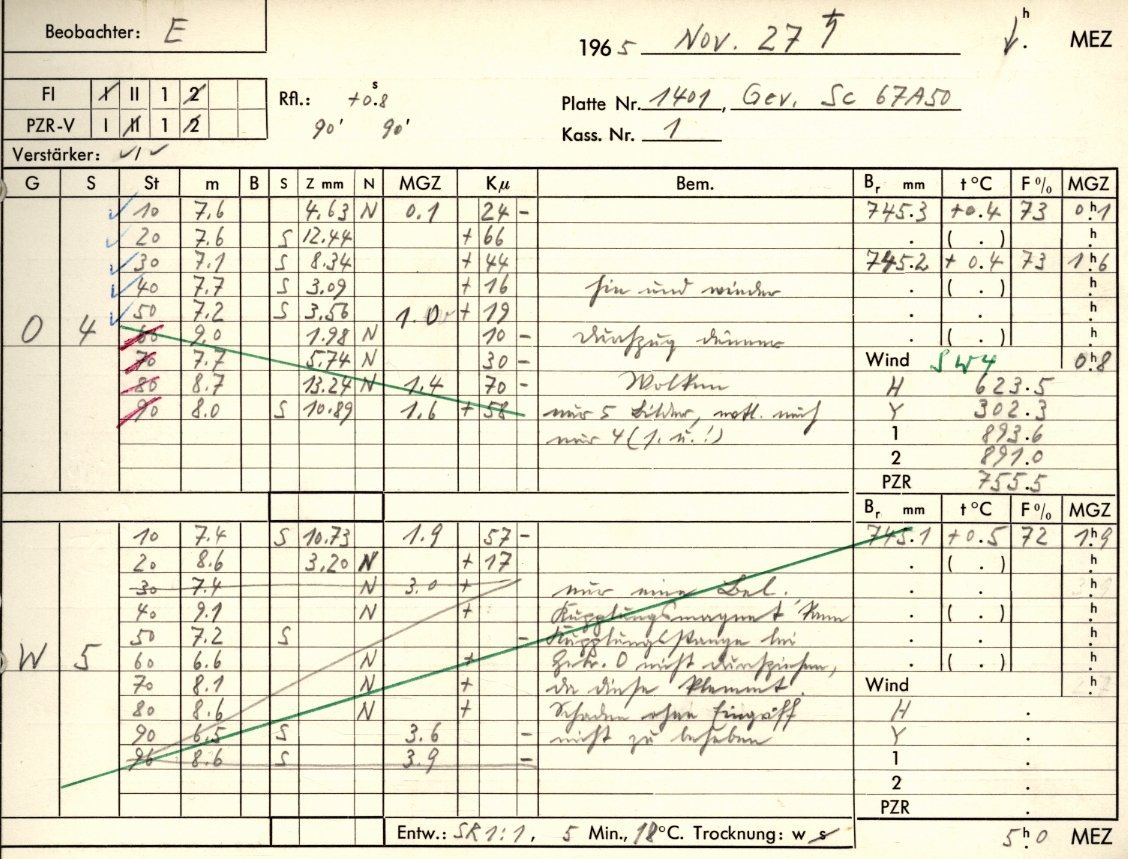 Beobachter: E
1965 Nov. 27 ♄ h MEZ
FI I II 1 2
PZR-V I II 1 2
Verstärker: ✓ / ✓
Rfl.: +0.8 s
90' 90'
Platte Nr. 1401, Gev. Sc 67A50
Kass. Nr. 1
G S St m B S Z mm N MGZ Kμ Bem. Br mm t°C F% MGZ
O 4
10 7.6 4.63 N 0.1 24 - 745.3 +0.4 73 0.h1
20 7.6 S 12.44 + 66 . ( . ) h
30 7.1 S 8.34 + 44 745.2 +0.4 73 1.h6
40 7.7 S 3.09 + 16 hin und wieder . ( . ) h
50 7.2 S 3.56 1.0 + 19 . . h
60 9.0 1.98 N 10 - Durchzug dünner . ( . ) h
70 7.7 5.74 N 30 - Wind SW4 0.h8
80 8.7 13.24 N 1.4 70 - Wolken H 623.5
90 8.0 S 10.89 1.6 + 58 nur 5 Bilder, evtl. auch Y 302.3
nur 4 (1. u. !) 1 893.6
2 891.0
PZR 755.5
Br mm t°C F% MGZ
W 5
10 7.4 S 10.73 1.9 57 - 745.1 +0.5 72 1.h9
20 8.6 3.20 N + 17 . ( . ) h
30 7.4 N 3.0 + nur eine Bel. . . h
40 9.1 N + Kupplungsmagnet kann . ( . ) h
50 7.2 S - Kupplungsstange bei . . h
60 6.6 N + Gebr. O nicht durchziehen, . ( . ) h
70 8.1 N + da diese klemmt. Wind h
80 8.6 N + Schaden ohne Eingriff H .
90 6.5 S 3.6 - nicht zu beheben Y .
96 8.6 S 3.9 - 1 .
2 .
PZR .
Entw.: SR 1:1, 5 Min., 18°C. Trocknung: w s 5.h0 MEZ